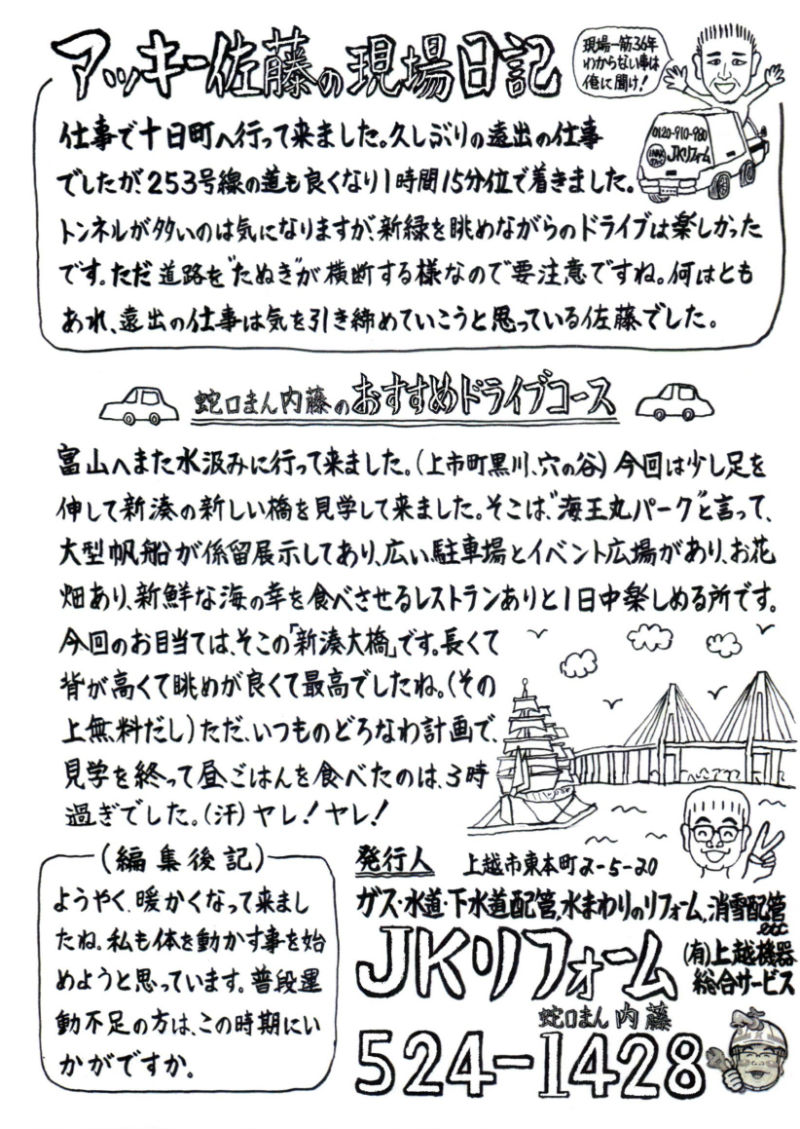 アッキー佐藤の現場日記
現場一筋36年
わからない事は
俺に聞け!
0120-910-980
JKリフォーム
仕事で十日町へ行って来ました。久しぶりの遠出の仕事
でしたが253号線の道も良くなり1時間15分位で着きました。
トンネルが多いのは気になりますが、新緑を眺めながらのドライブは楽しかった
です。ただ道路を"たぬき"が横断する様なので要注意ですね。何はとも
あれ、遠出の仕事は気を引き締めていこうと思っている佐藤でした。
蛇口まん内藤のおすすめドライブコース
富山へまた水汲みに行って来ました。(上市町黒川、穴の谷)今回は少し足を
伸して新湊の新しい橋を見学して来ました。そこは、"海王丸パーク"と言って、
大型帆船が係留展示してあり、広い駐車場とイベント広場があり、お花
畑あり、新鮮な海の幸を食べさせるレストランありと1日中楽しめる所です。
今回のお目当ては、そこの「新湊大橋」です。長くて
背が高くて眺めが良くて最高でしたね。(その
上無料だし)ただ、いつものどろなわ計画で、
見学を終って昼ごはんを食べたのは、3時
過ぎでした。(汗)ヤレ!ヤレ!
(編集後記)
ようやく、暖かくなって来まし
たね。私も体を動かす事を始
めようと思っています。普段運
動不足の方は、この時期にい
かがですか。
発行人 上越市東本町2-5-20
ガス・水道・下水道配管,水まわりのリフォーム,消雪配管
etc
JKリフォーム
(有)上越機器
総合サービス
蛇口まん内藤
524-1428